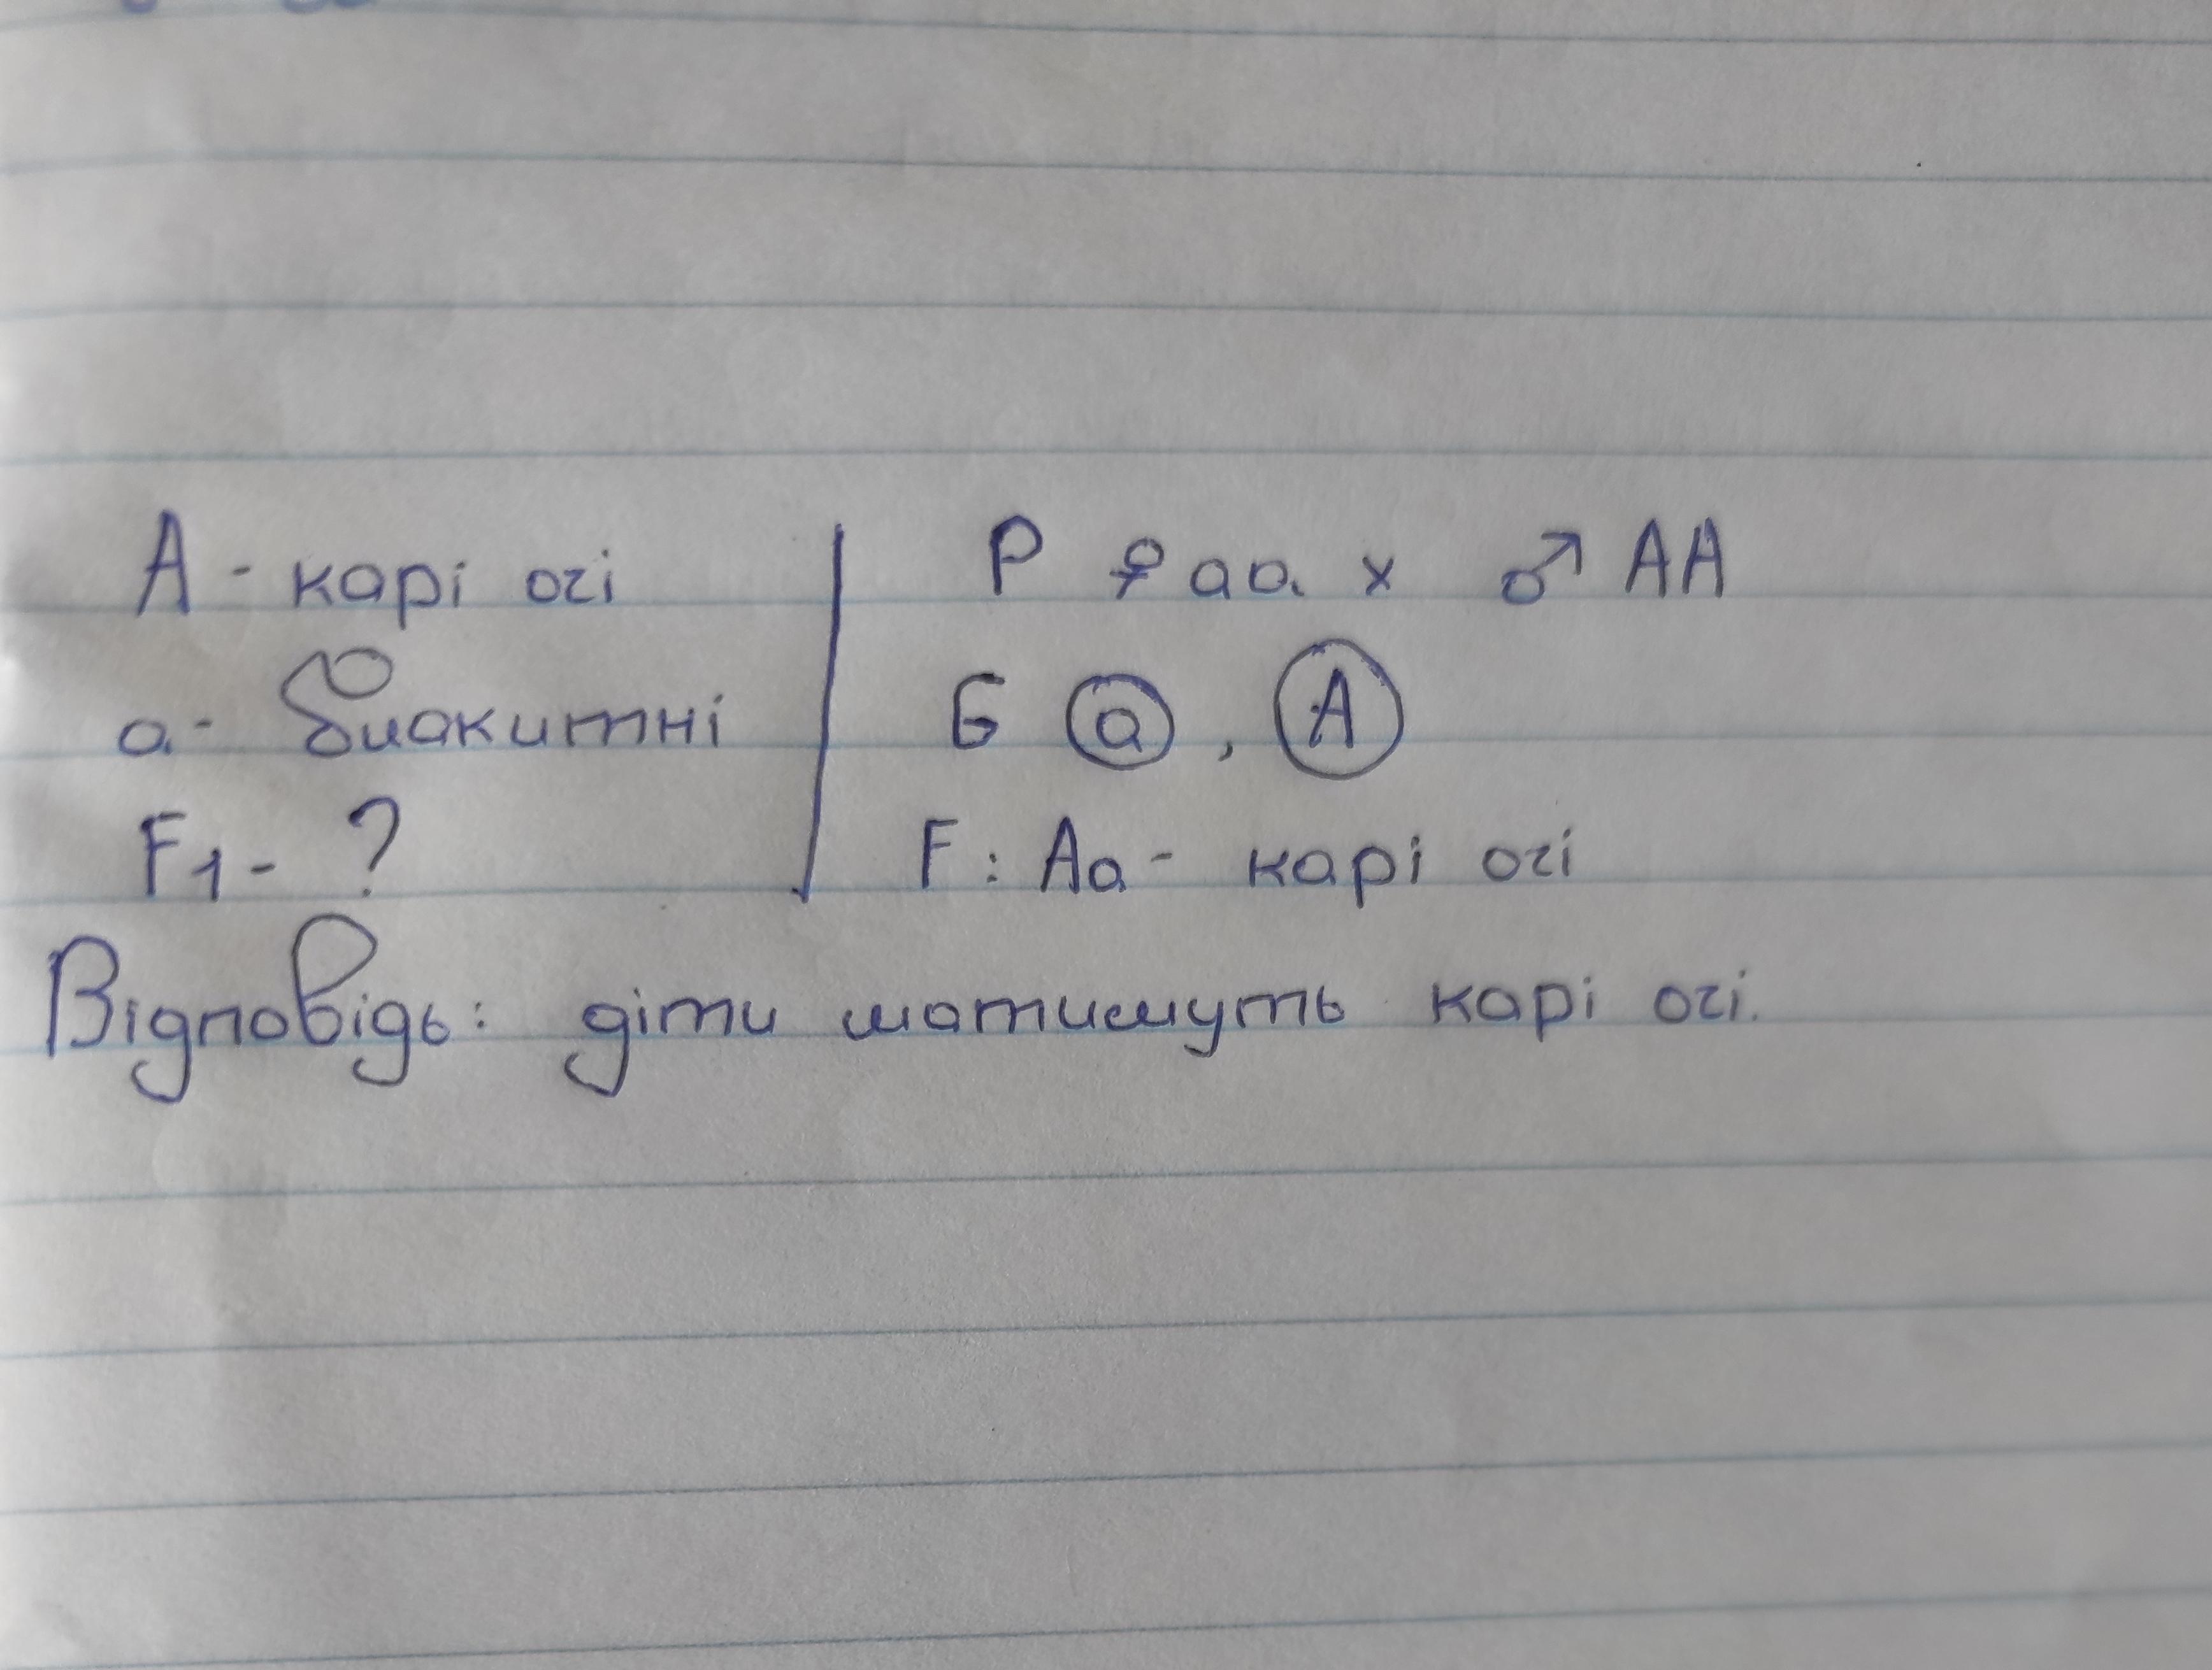 А - карі очі
а - блакитні
F1 - ?
P ♀ aa x ♂ AA
G (a), (A)
F: Aa - карі очі
Відповідь: діти матимуть карі очі.